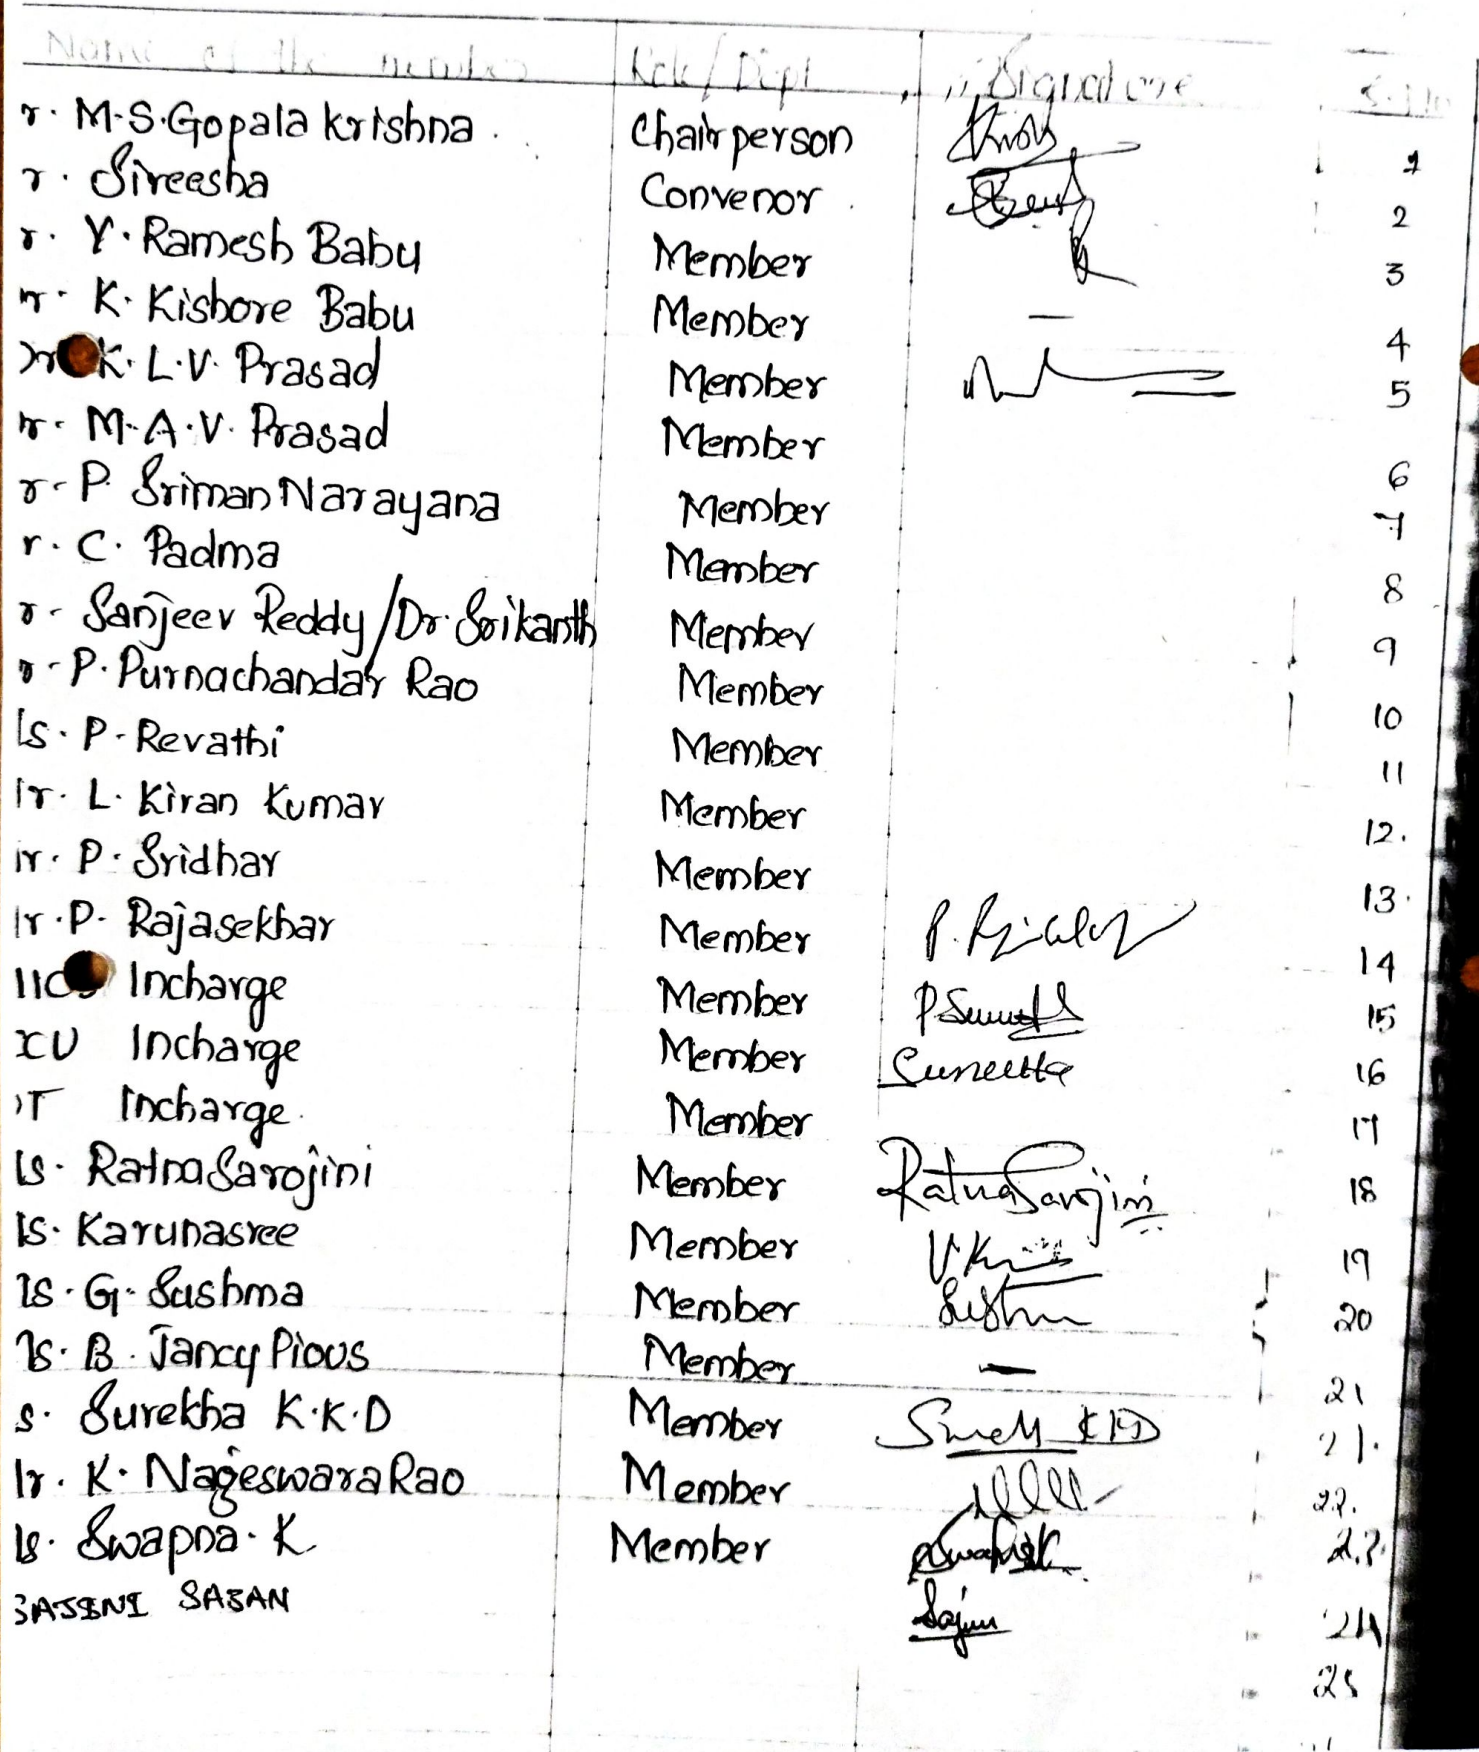 Name of the member Role/Dept Signature S.No
r. M.S.Gopala krishna. Chairperson 1
r. Sireesha Convenor. 2
r. Y. Ramesh Babu Member 3
r. K. Kishore Babu Member — 4
r. K.L.V. Prasad Member 5
r. M.A.V. Prasad Member 6
r. P. Sriman Narayana Member 7
r. C. Padma Member 8
r. Sanjeev Reddy/Dr. Srikanth Member 9
r. P. Purnachandar Rao Member 10
s. P. Revathi Member 11
r. L. Kiran Kumar Member 12.
r. P. Sridhar Member 13.
r. P. Rajasekhar Member 14
Incharge Member 15
ICU Incharge Member Suneetha 16
OT Incharge. Member 17
s. Ratna Sarojini Member Ratna Sarojini 18
s. Karunasree Member 19
s. G. Sushma Member 20
s. B. Jancy Pious Member — 21
s. Surekha K.K.D Member 21.
r. K. Nageswara Rao Member 22.
s. Swapna. K Member 23
SAJINI SAJAN 24
25